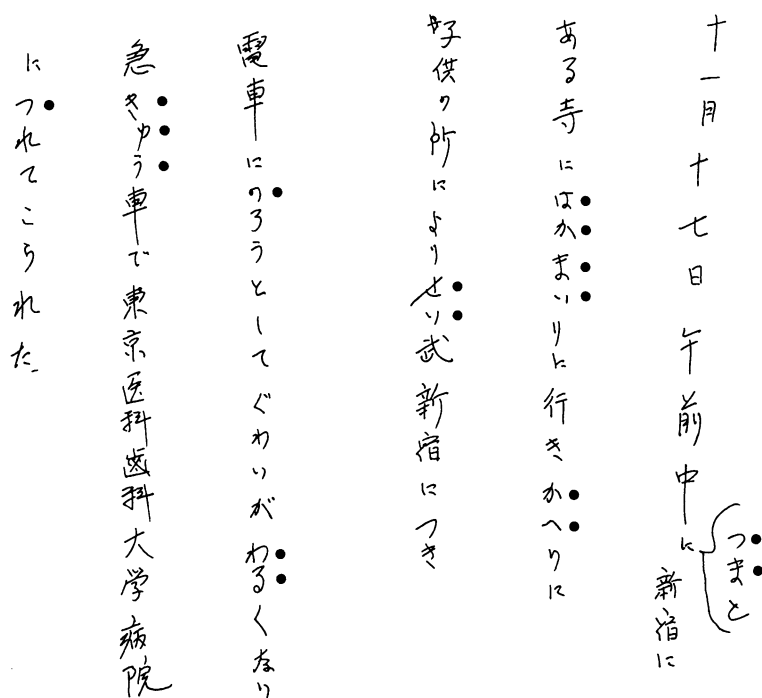 十一月十七日午前中に
つまと
新宿に
ある寺にはかまいりに行きかへりに
子供の所によりせい武新宿につき
電車にのろうとしてぐわいがわるくなり
急きゅう車で東京医科歯科大学病院
につれてこられた。